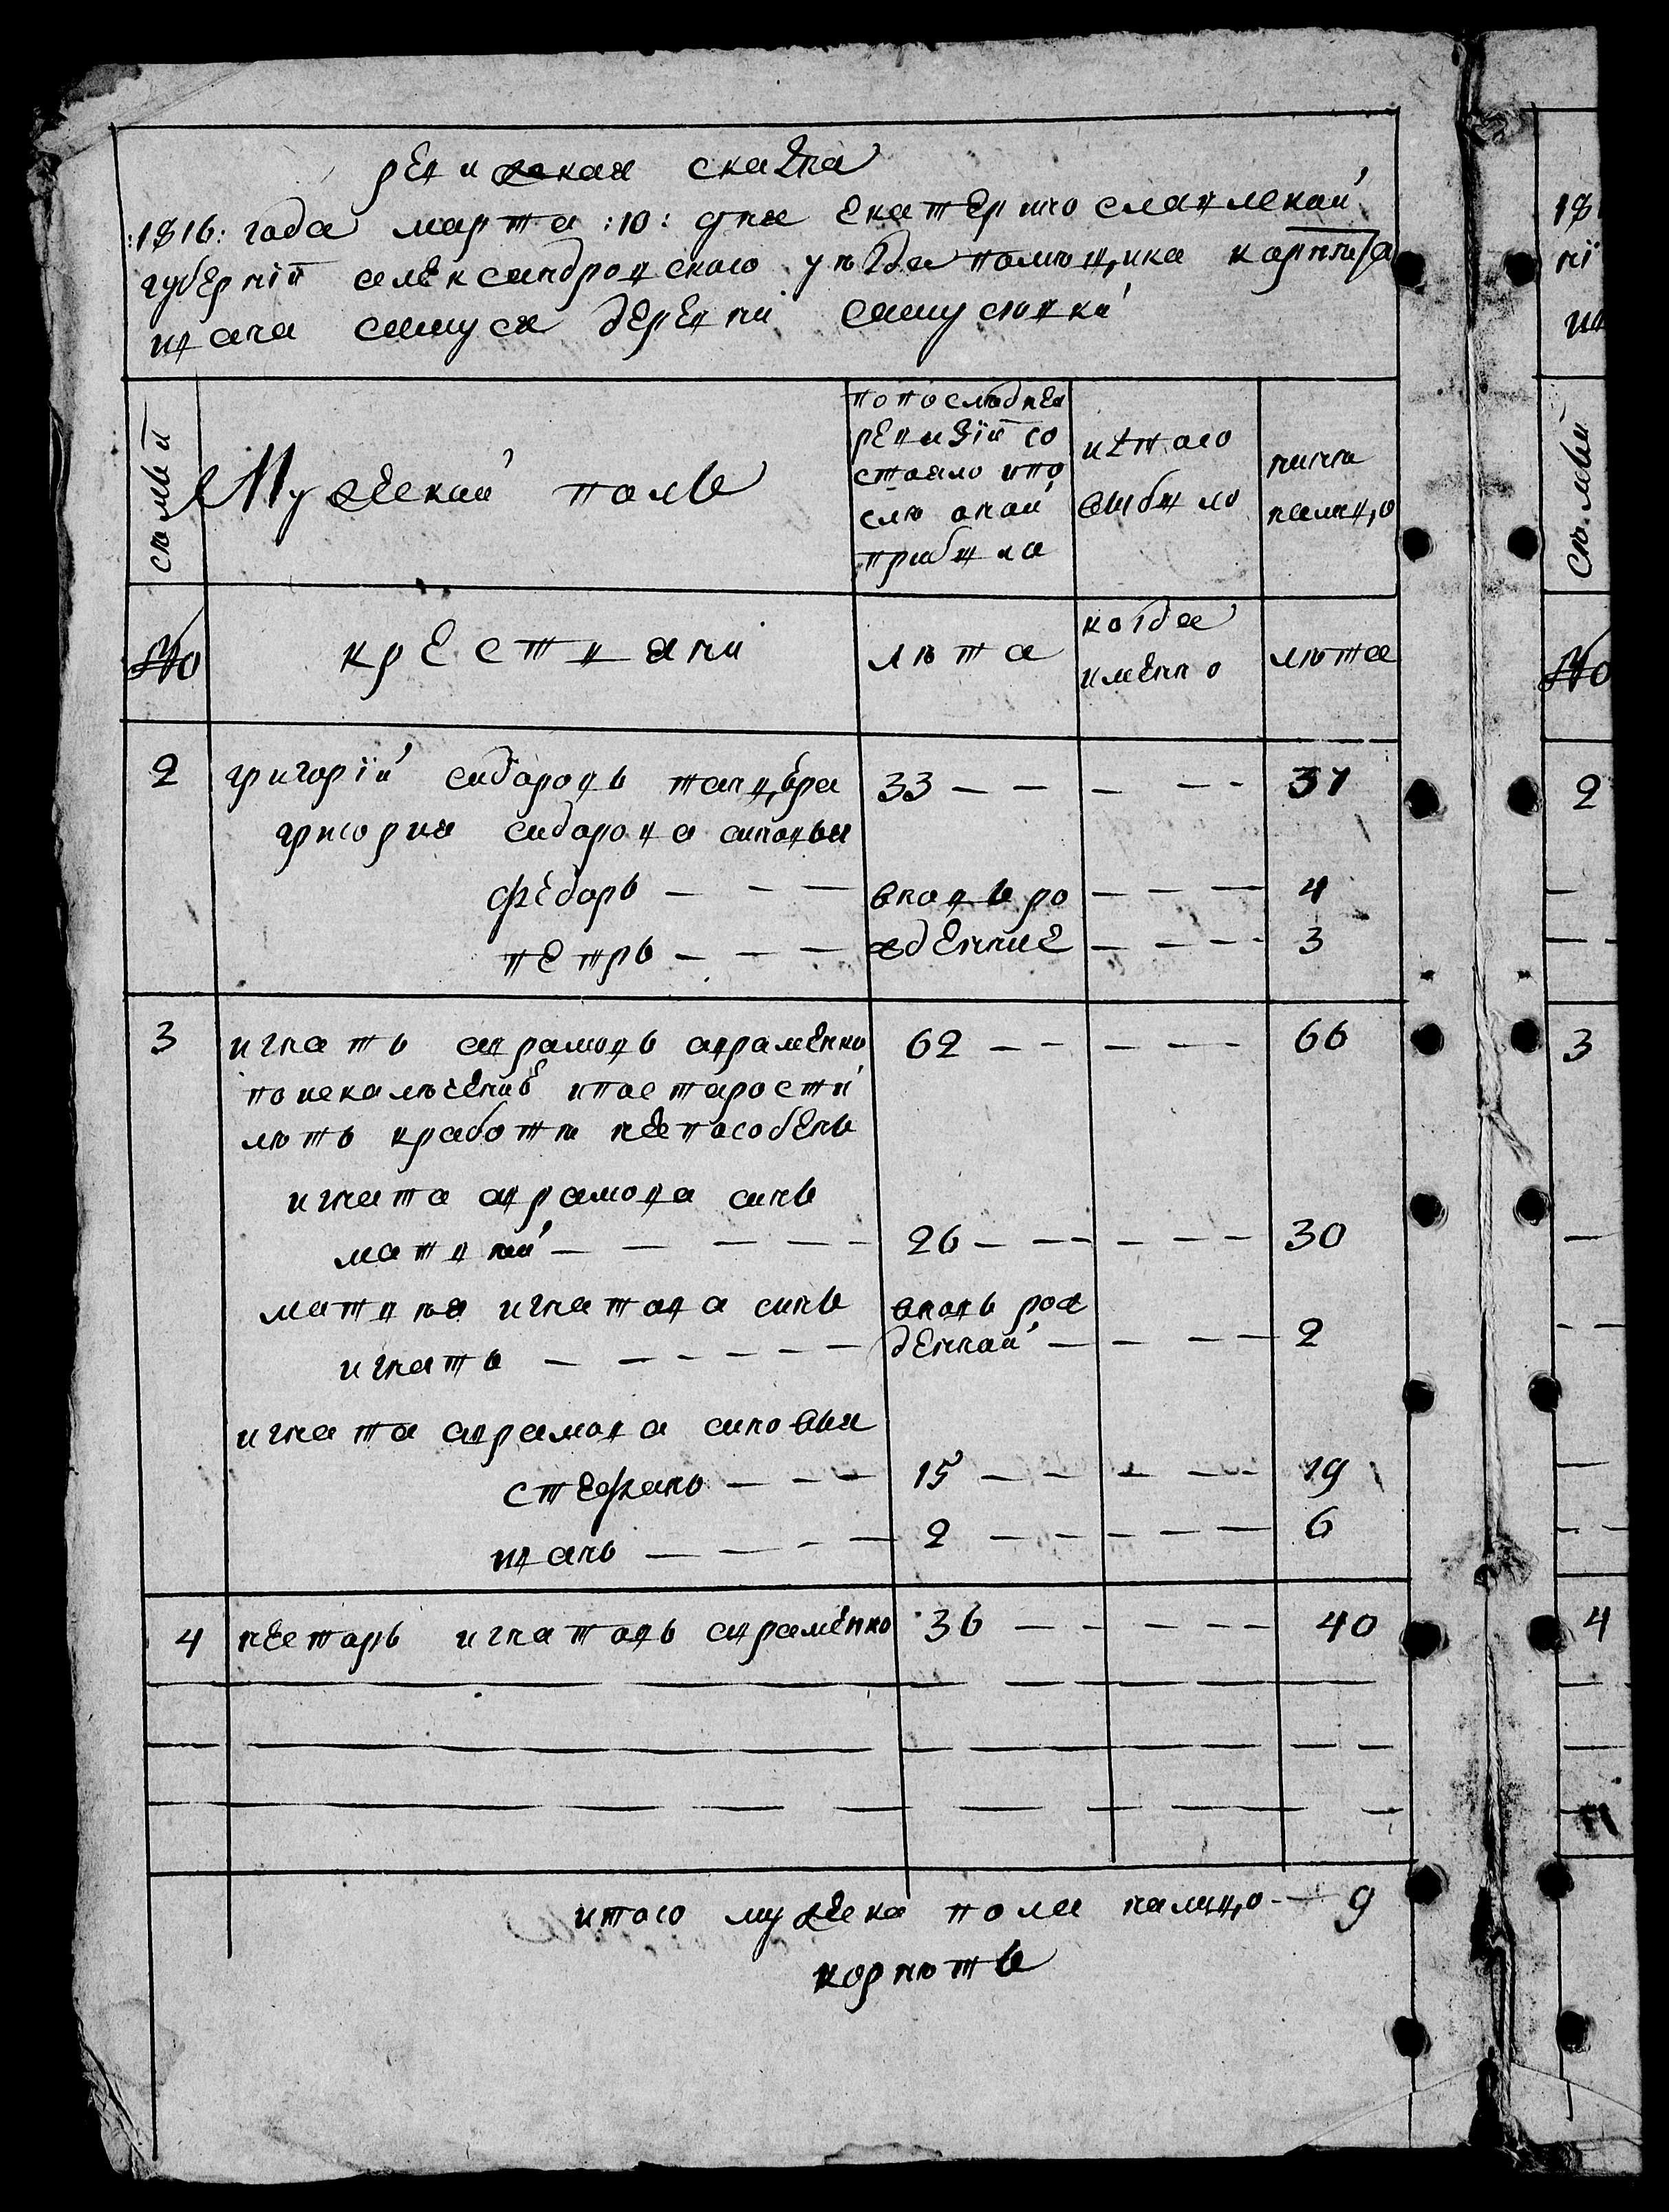 ревижская скаска
:1816: года марта :10: дня екатеринославской
губерніи александровского уѣзда помѣщика корнѣта
ивана самуся деревни самусювки
семьи
Мужеской полъ
по последнеи
ревизіи со
стояло и по
слѣ оной
прибыло
изтого
выбыло
нинѣ
налицо
№
крестьяни
лѣта
когда
именно
лѣта
2 григорій сидоровъ 33 — — — — — 37
григория сидорова сыновья
федоръ — — — вновь ро — — — 4
петръ — — — жденние — — — 3
3 игнатъ аврамовъ авраменко 62 — — — — — 66
по искалѣчению и по старости
лѣтъ к работи неспособенъ
игната аврамова синъ
матвѣй — — — — — 26 — — — — — 30
матвѣя игнатова синъ вновь рож
игнатъ — — — — — — денной — — — — 2
игната аврамова сыновья
стефанъ — — — 15 — — — — — 19
иванъ — — — — 2 — — — — — — 6
4 несторъ игнатовъ авраменко 36 — — — — — 40
итого мужеска пола налицо — 9
корнѣтъ
18
ні
ив
семьи
№
2
3
4